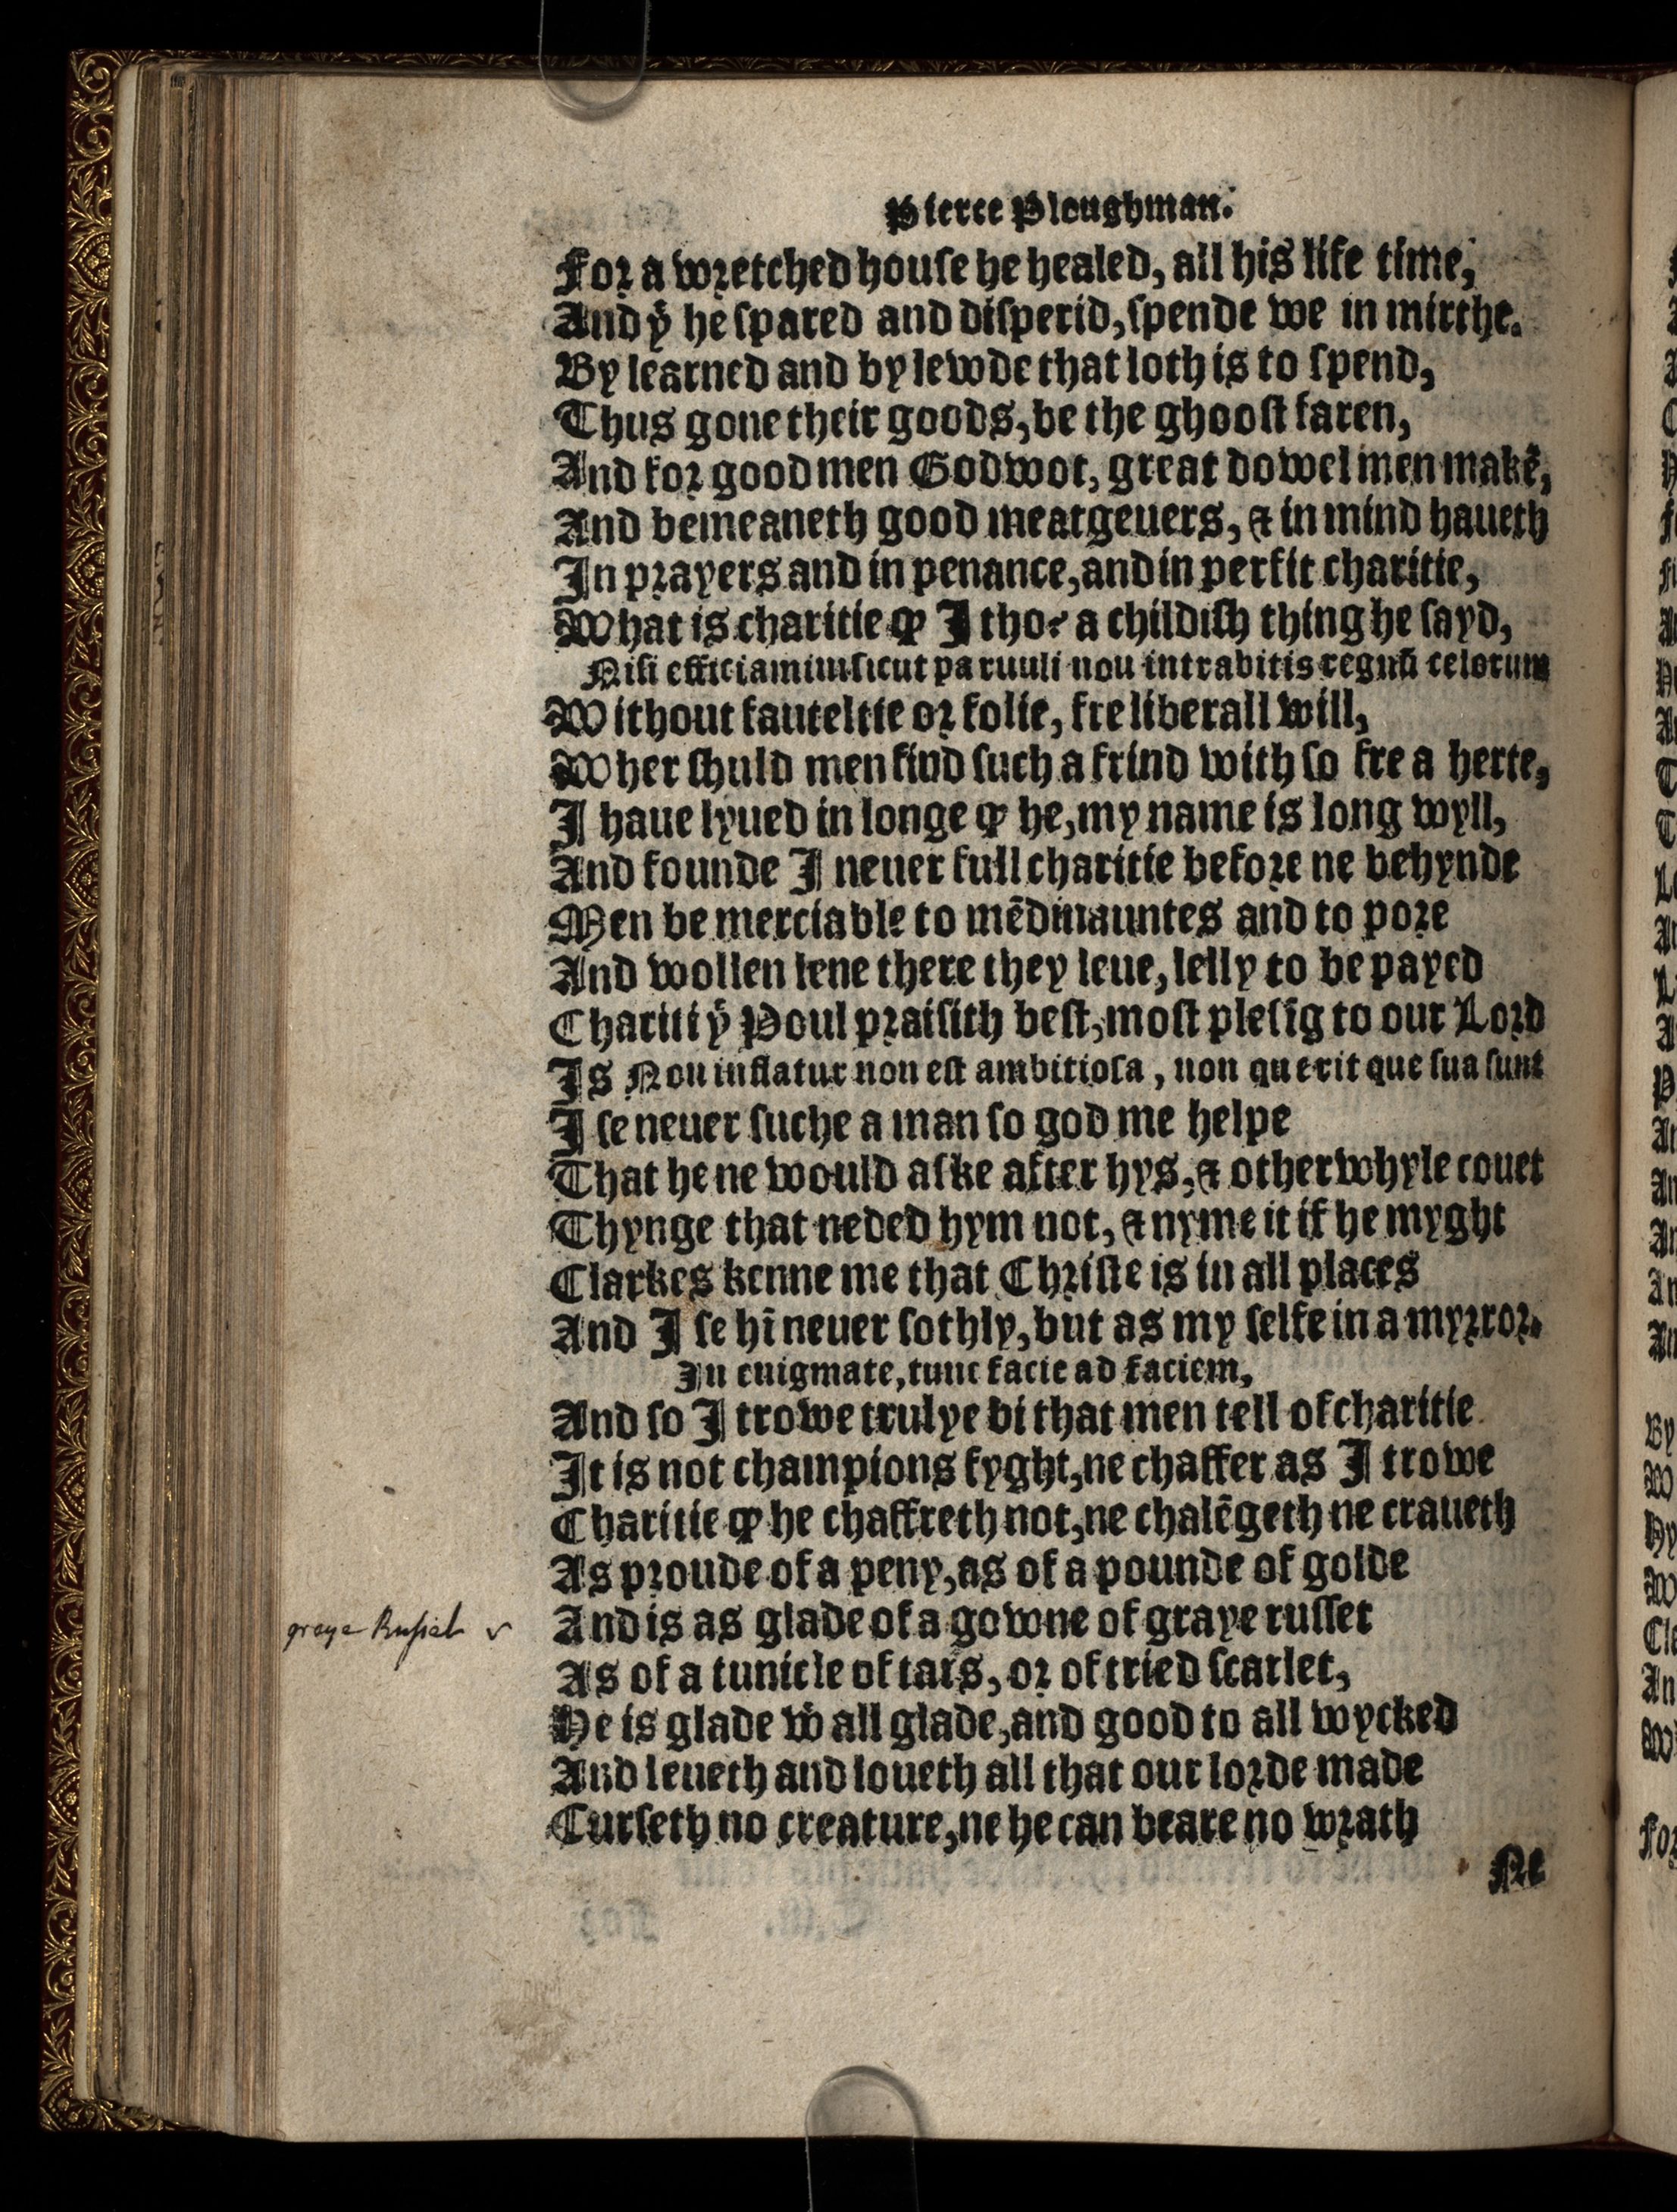 Pierce Ploughman.
For a wretched house he healed, all his life time,
And yͭ he spared and disperid, spende we in mirthe.
By learned and by lewde that loth is to spend,
Thus gone their goods, be the ghoost faren,
And for good men God wot, great dowel men makē,
And bemeaneth good meatgeuers, & in mind haueth
In prayers and in penance, and in perfit charitie,
What is charitie ꝙ I tho? a childish thing he sayd,
Nisi efficiamini sicut paruuli non intrabitis regnū celorum
Without fauteltie or folie, fre liberall will,
Wher shuld men find such a frind with so fre a herte,
I haue lyued in longe ꝙ he, my name is long wyll,
And founde I neuer full charitie before ne behynde
Men be merciable to mēdinauntes and to pore
And wollen lene there they leue, lelly to be payed
Chariti yͭ Poul praisith best, most plesīg to our Lord
Is Non inflatur non est ambitiosa, non querit que sua sunt
I se neuer suche a man so god me helpe
That he ne would aske after hys, & otherwhyle couet
Thynge that neded hym not, & nyme it if he myght
Clarkes kenne me that Christe is in all places
And I se hī neuer sothly, but as my selfe in a myrror.
In enigmate, tunc facie ad faciem,
And so I trowe trulye bi that men tell of charitie
It is not champions fyght, ne chaffer as I trowe
Charitie ꝙ he chaffreth not, ne chalēgeth ne craueth
As proude of a peny, as of a pounde of golde
graye Russet v And is as glade of a gowne of graye russet
As of a tunicle of tars, or of tried scarlet,
He is glade wͭ all glade, and good to all wycked
And leueth and loueth all that our lorde made
Curseth no creature, ne he can beare no wrath
Ne